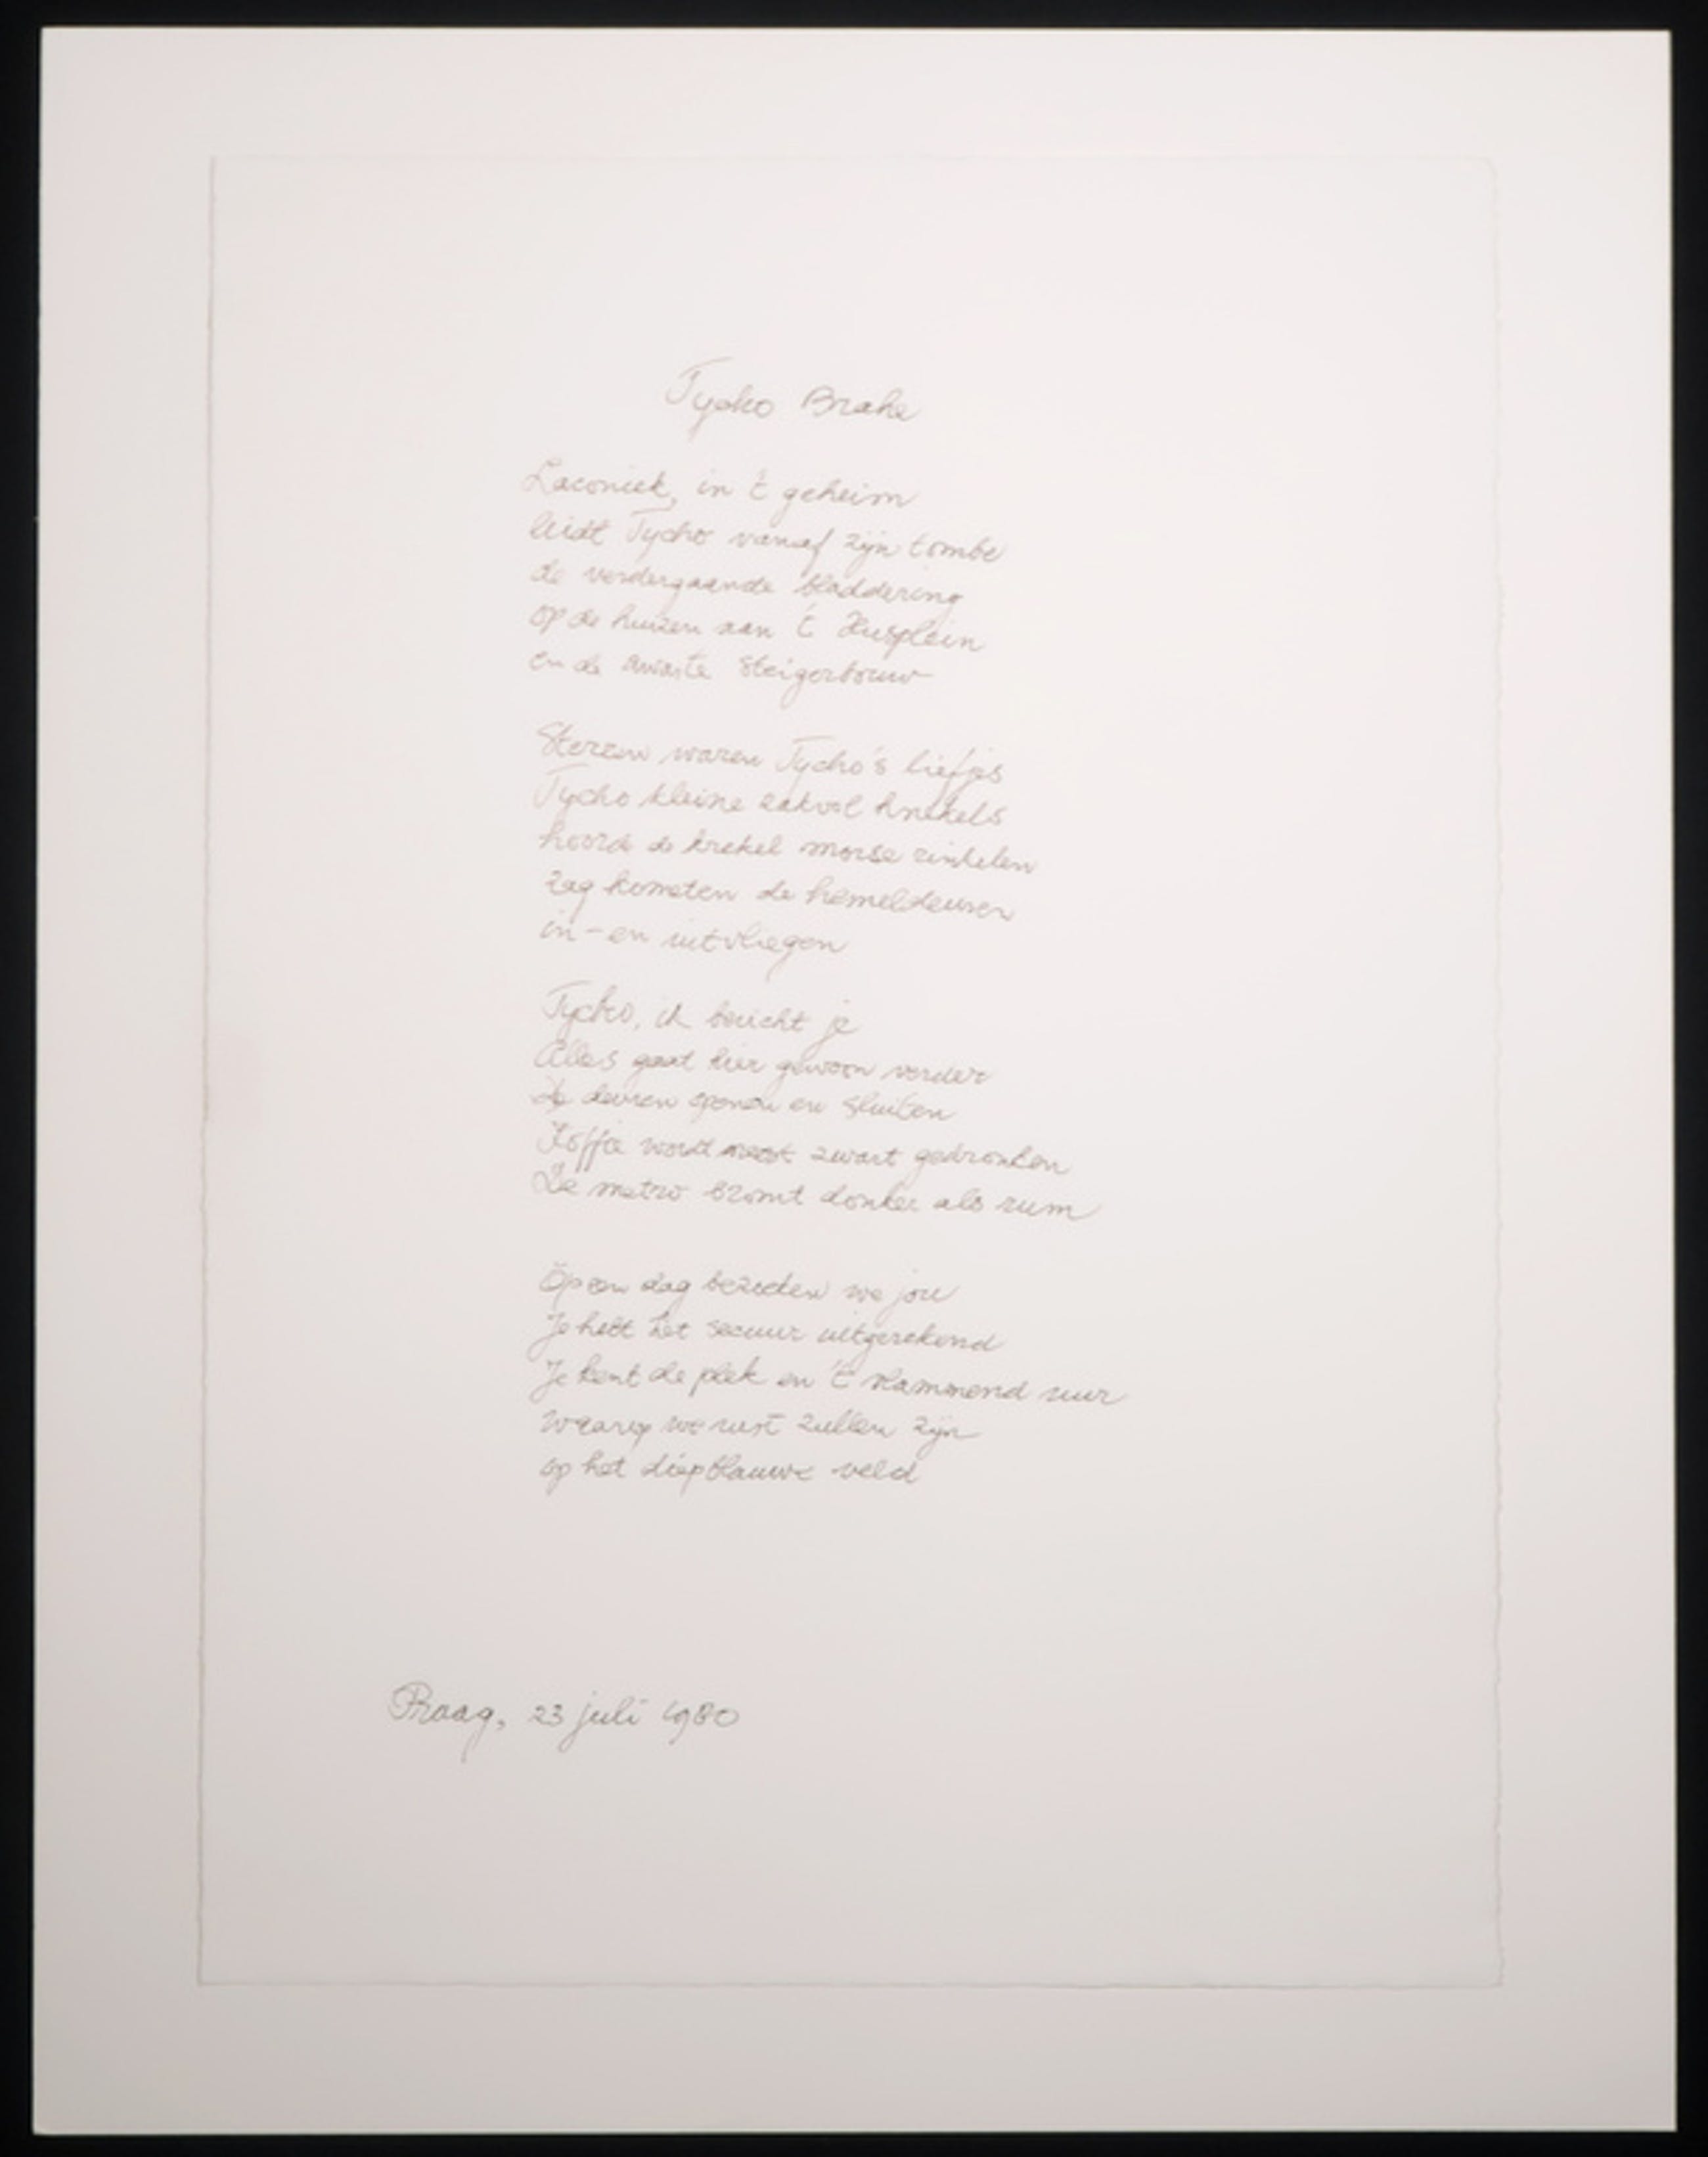 Tycho Brahe
Laconiek, in 't geheim
leidt Tycho vanaf zijn tombe
de verdergaande bladdering
op de huizen aan 't Husplein
en de zwarte steigerbouw
Sterren waren Tycho's liefjes
Tycho kleine zakvol knekels
hoorde de krekel morse rinkelen
zag kometen de hemeldeuren
in- en uitvliegen
Tycho, ik bericht je
Alles gaat hier gewoon verder
De deuren openen en sluiten
Koffie wordt meest zwart gedronken
De metro bromt donker als rum
Op een dag bezoeken we jou
Je hebt het secuur uitgerekend
Je kent de plek en 't vlammend uur
waarop we rust zullen zijn
op het diepblauwe veld
Praag, 23 juli 1980